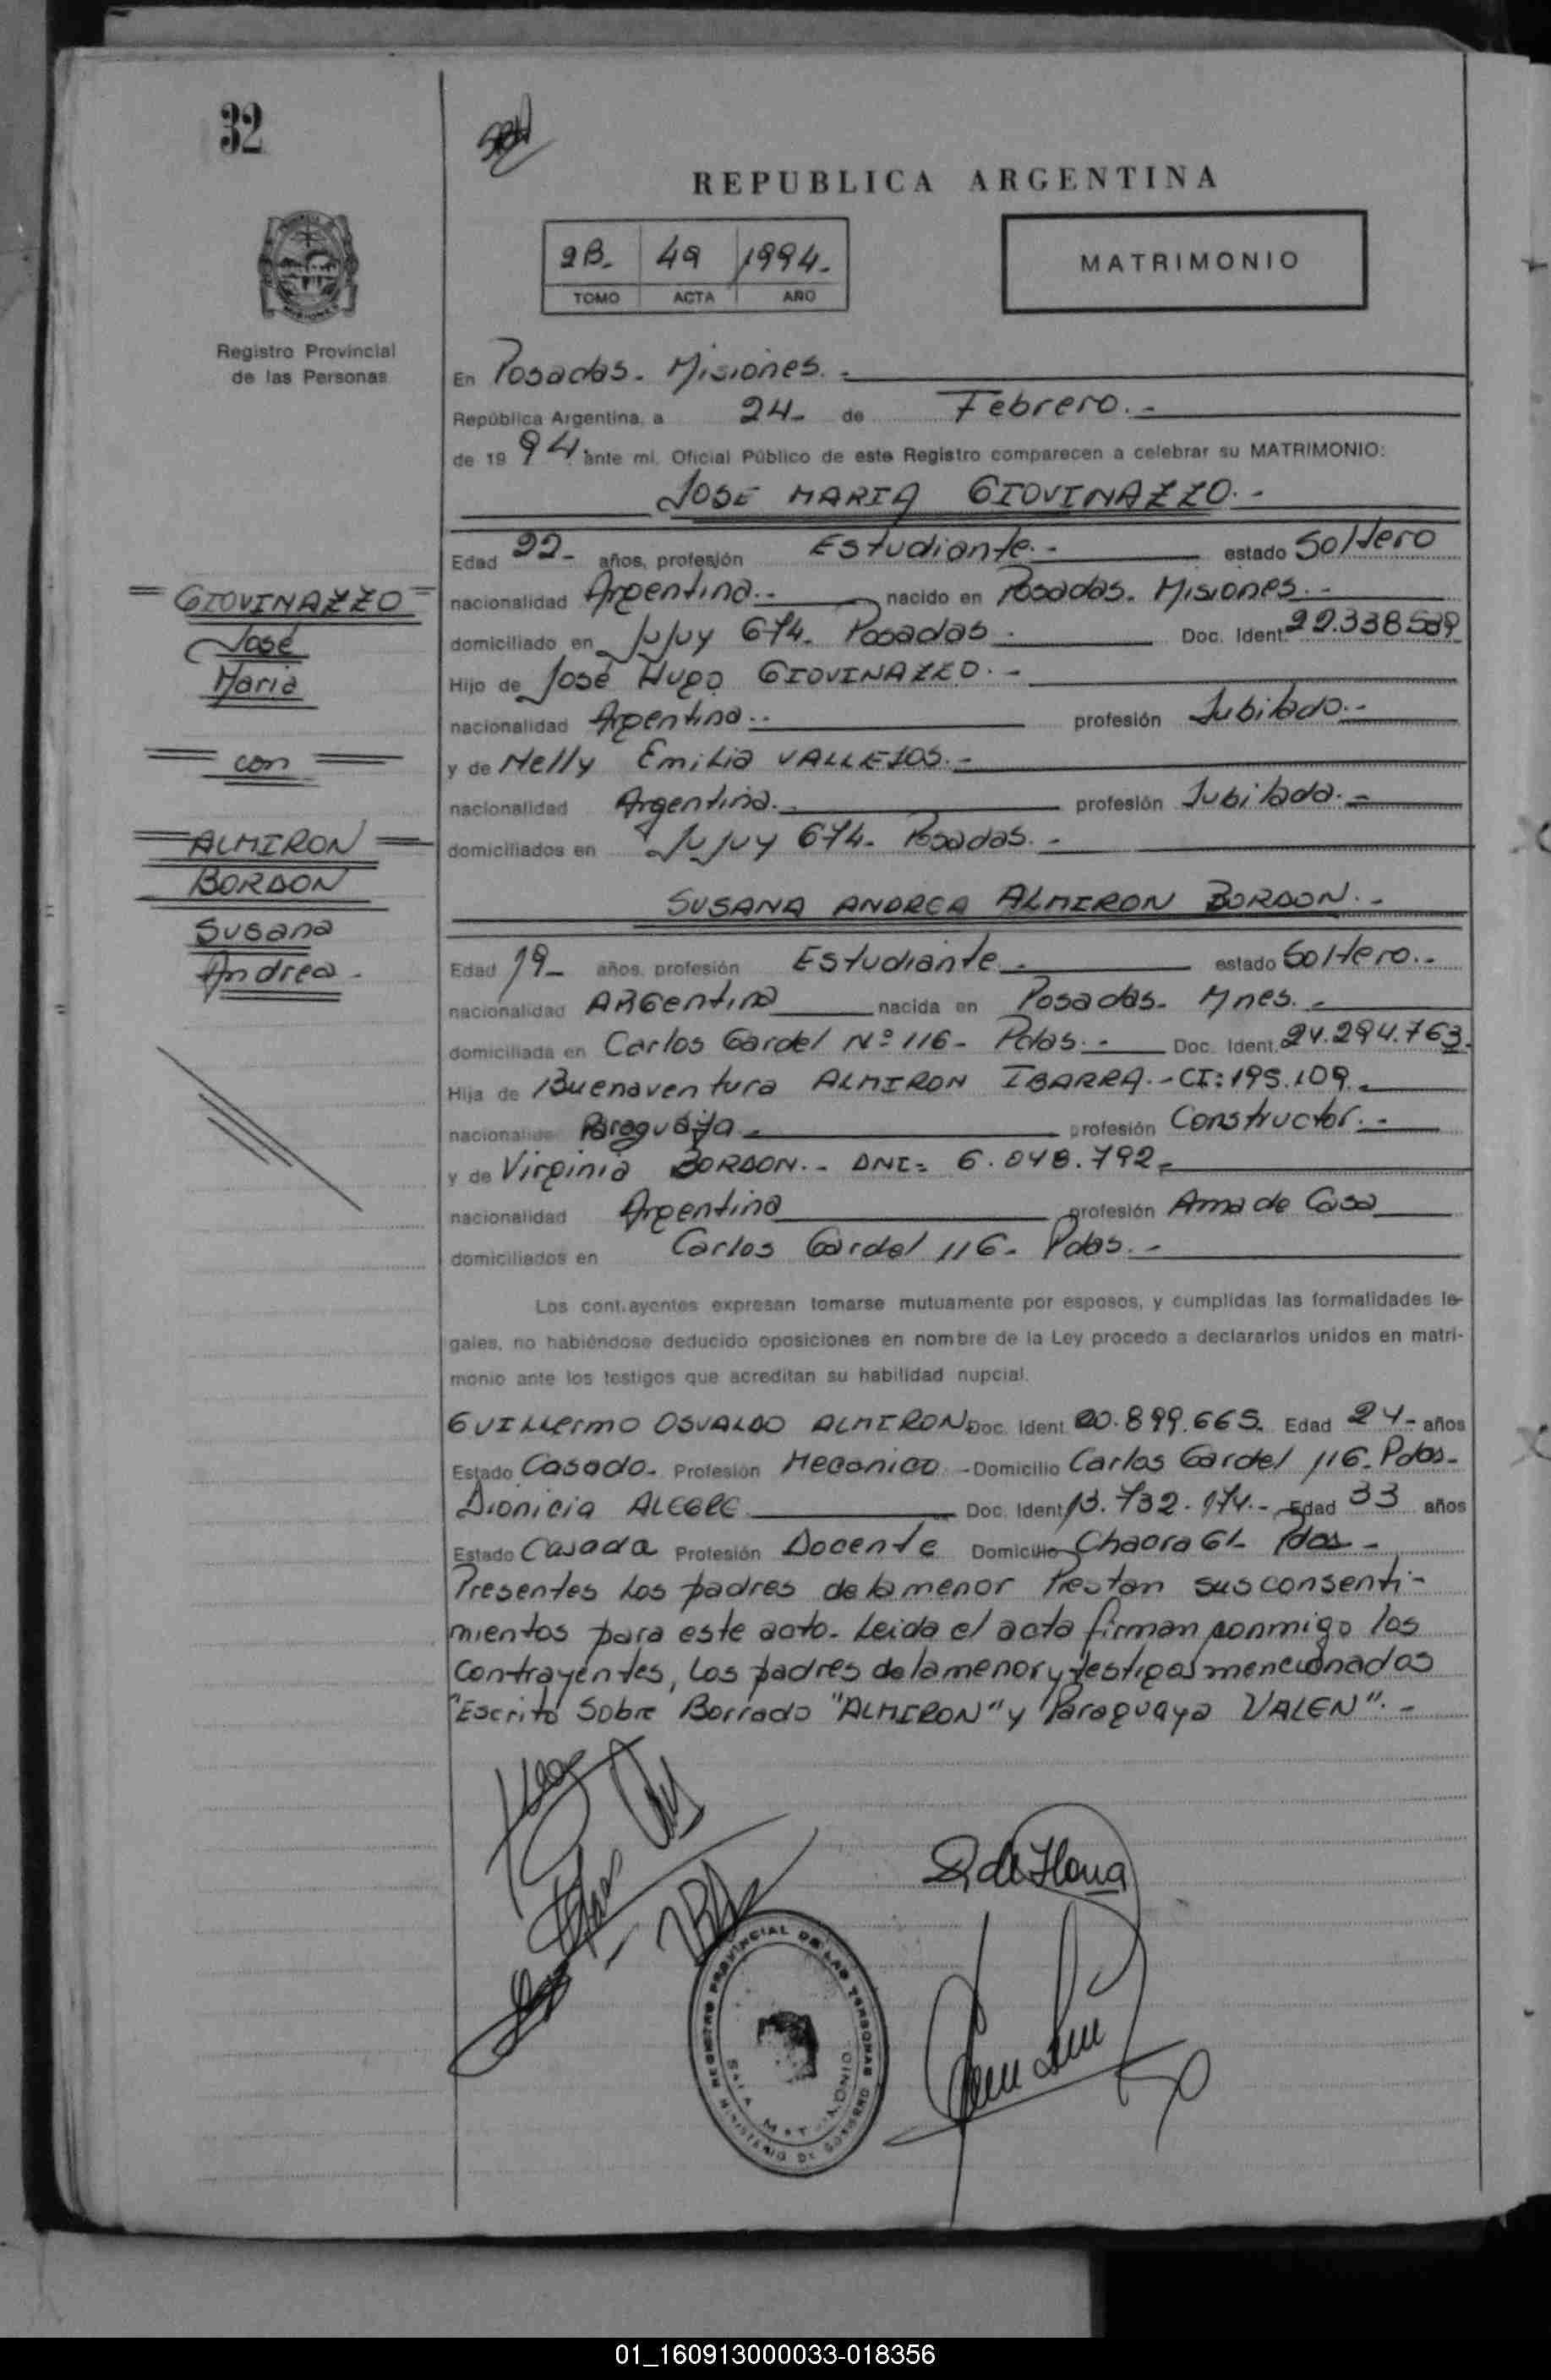 32
REPUBLICA ARGENTINA
2B- 49 1994-
TOMO ACTA AÑO
MATRIMONIO
Registro Provincial
de las Personas
En Posadas- Misiones.-
República Argentina, a 24- de Febrero.-
de 1994 ante mi, Oficial Público de este Registro comparecen a celebrar su MATRIMONIO:
JOSE MARIA GIOVINAZZO.-
Edad 22- años, profesión Estudiante.- estado Soltero
nacionalidad Argentina.- nacido en Posadas- Misiones.-
domiciliado en Jujuy 674- Posadas.- Doc. Ident. 22.338.589
Hijo de José Hugo GIOVINAZZO.-
nacionalidad Argentina.- profesión Jubilado.-
y de Nelly Emilia VALLEJOS.-
nacionalidad Argentina.- profesión Jubilada.-
domiciliados en Jujuy 674- Posadas.-
SUSANA ANDREA ALMIRON BORDON.-
Edad 19- años, profesión Estudiante.- estado Soltero.-
nacionalidad ARGentina nacida en Posadas- Mnes.-
domiciliada en Carlos Gardel Nº 116- Pdas.- Doc. Ident. 24.294.763-
Hija de Buenaventura ALMIRON IBARRA.- CI: 195.109.-
nacionalidad Paraguaya.- profesión Constructor.-
y de Virginia BORDON.- DNI= 6.048.792-
nacionalidad Argentina profesión Ama de Casa
domiciliados en Carlos Gardel 116- Pdas.-
Los contrayentes expresan tomarse mutuamente por esposos, y cumplidas las formalidades le-
gales, no habiéndose deducido oposiciones en nombre de la Ley procedo a declararlos unidos en matri-
monio ante los testigos que acreditan su habilidad nupcial.
GUILLermo OSVALDO ALMIRON Doc. Ident. 20.899.665. Edad 24- años
Estado Casado- Profesión Mecanico - Domicilio Carlos Gardel 116- Pdas-
Dionicia ALEGRE Doc. Ident. 13.732.174.- Edad 33 años
Estado Casada Profesión Docente Domicilio Chacra 61- Pdas-
Presentes los padres de la menor Prestan sus consenti-
mientos para este acto- Leida el acta firman conmigo los
contrayentes, los padres de la menor y testigos mencionados
"Escrito Sobre Borrado "ALMIRON" y Paraguaya VALEN".-
GIOVINAZZO
José
Maria
con
ALMIRON
BORDON
Susana
Andrea-
REGISTRO PROVINCIAL DE LAS PERSONAS
MINISTERIO DE GOBIERNO
01_160913000033-018356